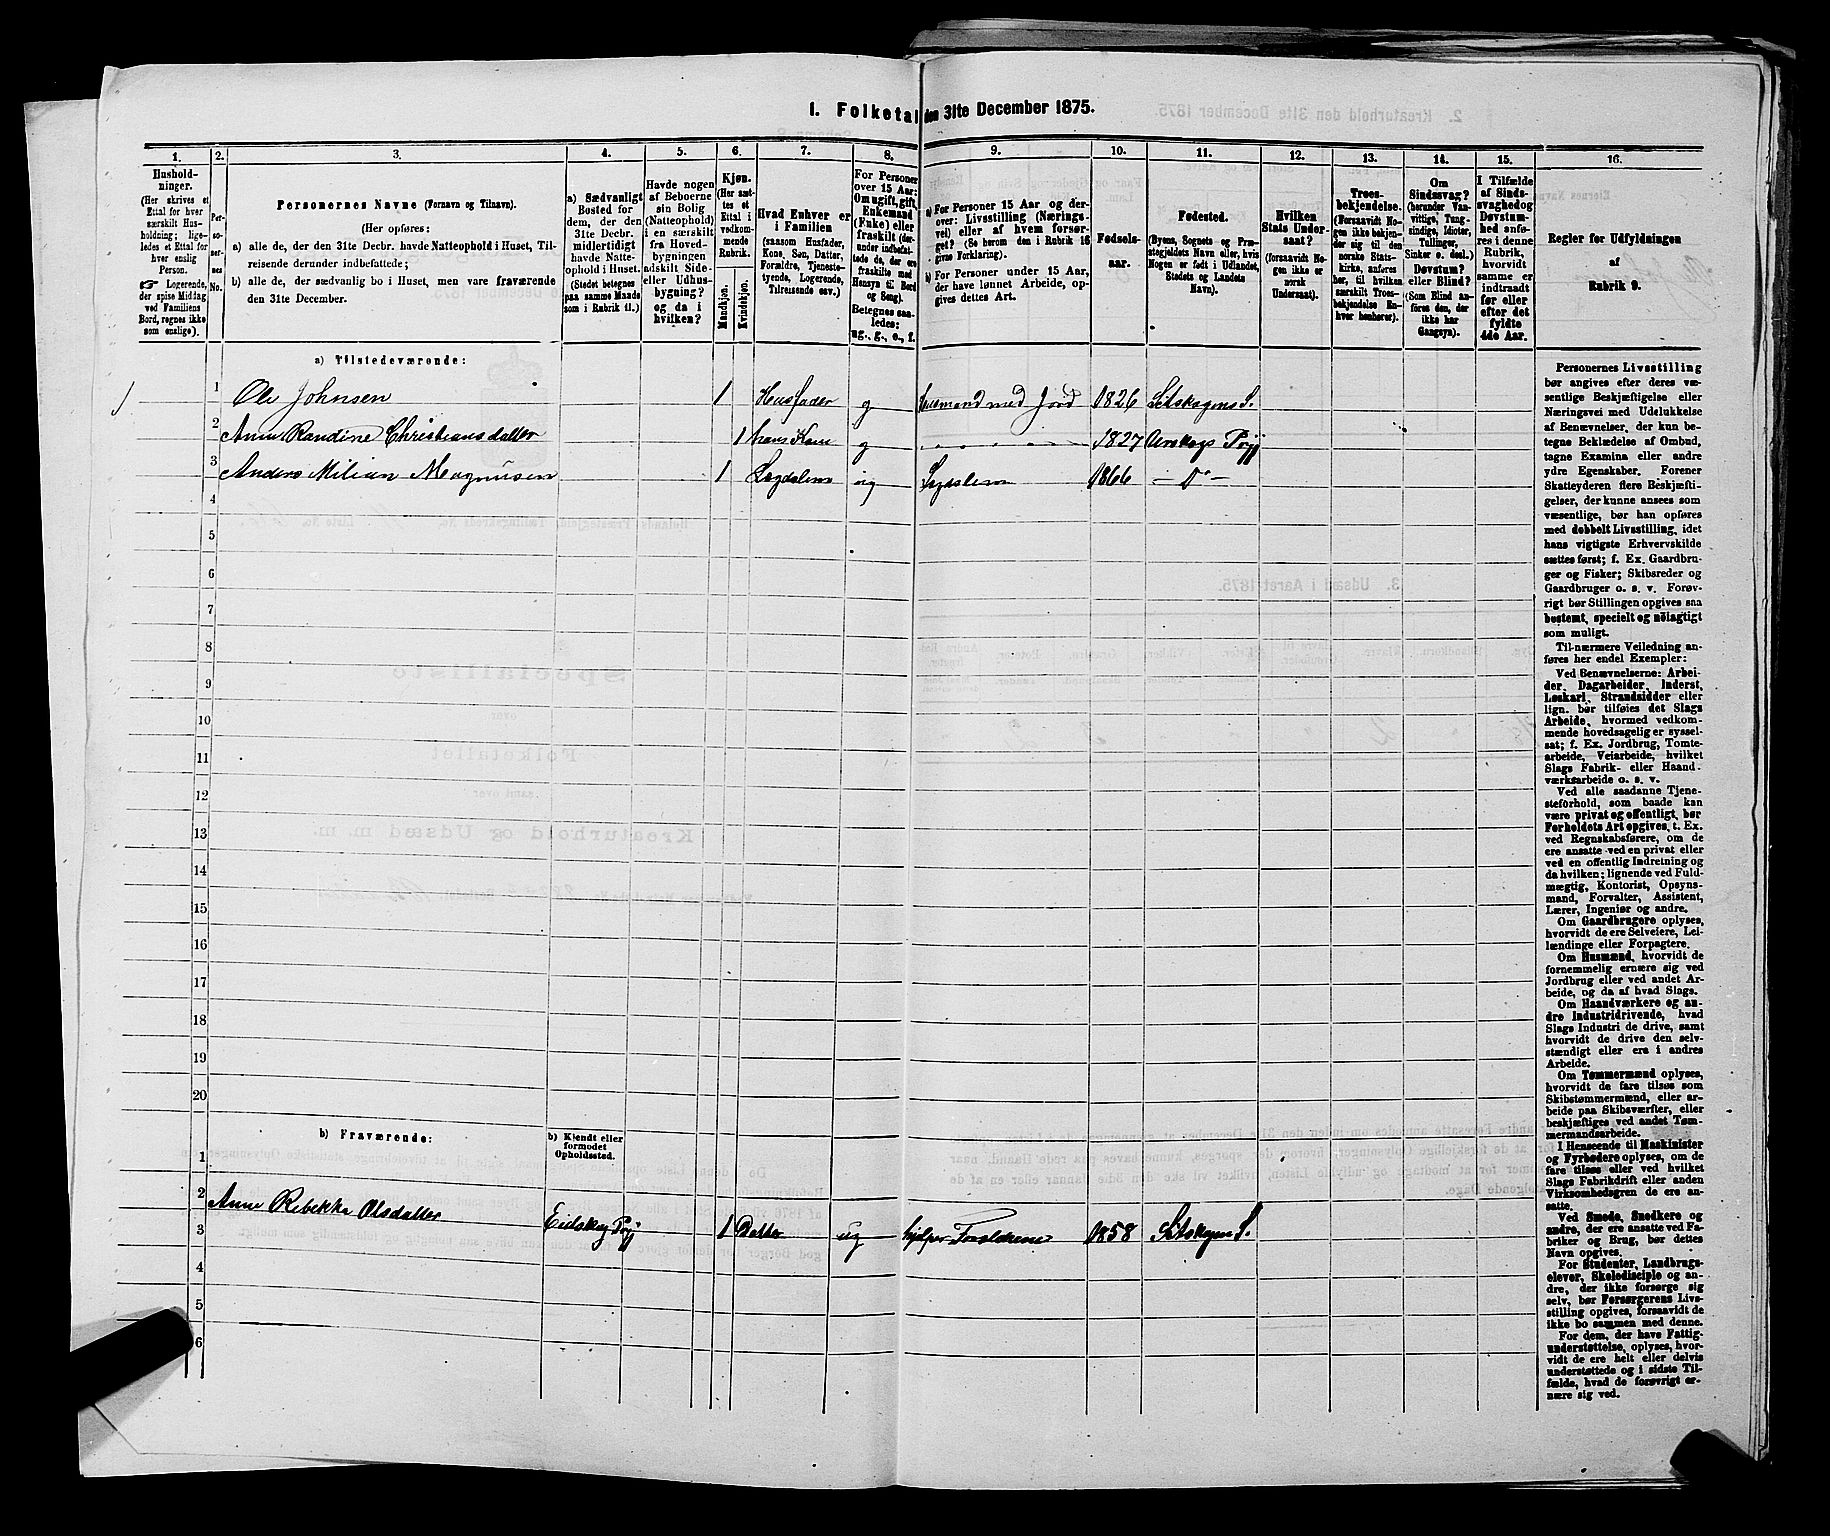 1. Folketal den 31te December 1875.
1.
2.
3.
4.
5.
6.
7.
8.
9.
10.
11.
12.
13.
14.
15.
16.
Hushold-
ninger.
(Her skrives et
Ettal for hver
særskilt Hus-
holdning; lige-
ledes et Ettal for
hver enslig
Person.
☞ Logerende,
der spise Middag
ved Familiens
Bord, regnes ikke
som enslige).
Per-
so-
ner-
nes
No.
Personernes Navne (Fornavn og Tilnavn).
(Her opføres:
a) alle de, der den 31te Decbr. havde Natteophold i Huset, Til-
reisende derunder indbefattede;
b) alle de, der sædvanlig bo i Huset, men vare fraværende
den 31te December.
a) Sædvanligt
Bosted for
dem, der den
31te Decbr.
midlertidigt
havde Natte-
ophold i Huset.
(Stedet betegnes
paa samme Maade
som i Rubrik 11.)
Havde nogen
af Beboerne
sin Bolig
(Natteophold)
i en særskilt
fra Hoved-
bygningen
adskilt Side-
eller Udhus-
bygning?
og da i
hvilken?
Kjøn.
(Her sæt-
tes et
Ettal i
vedkom-
mende
Rubrik.
Mandkjøn.
Kvindekjøn.
Hvad Enhver er
i Familien
(saasom Husfader,
Kone, Søn, Datter,
Forældre, Tjeneste-
tyende, Logerende,
Tilreisende osv.)
For Personer
over 15 Aar:
Om ugift, gift,
Enkemand
(Enke) eller
fraskilt (der-
under indbefat-
tede de, der ere
fraskilte med
Hensyn til Bord
og Seng).
Betegnes saa-
ledes:
ug., g., e., f.
a) For Personer 15 Aar og der-
over: Livsstilling (Nærings-
vei) eller af hvem forsør-
get? (Se herom den i Rubrik 16
givne Forklaring).
b) For Personer under 15 Aar,
der have lønnet Arbeide, op-
gives dettes Art.
Fødsels-
aar.
Fødested.
(Byens, Sognets og Præ-
stegjeldets Navn eller, hvis
Nogen er født i Udlandet,
Stedets og Landets
Navn).
Hvilken
Stats Under-
saat?
(forsaavidt No-
gen ikke er
norsk
Undersaat).
Troes-
bekjendelse.
(Forsaavidt No-
gen ikke bekjen-
der sig til den
norske Stats-
kirke, anføres
her, til hvilken
særskilt Troes-
bekjendelse En-
hver henhører).
Om
Sindssvag?
(herunder Van-
vittige, Tung-
sindige, Idioter,
Tullinger,
Sinker o. desl.)
Døvstum?
eller Blind?
(Som Blind an-
føres den, der
ikke har
Gangsyn).
I Tilfælde
af Sinds-
svaghed og
Døvstum-
hed anfø-
res i denne
Rubrik,
hvorvidt
samme er
indtraadt
før eller
efter det
fyldte
4de Aar.
Regler for Udfyldningen
af
Rubrik 9.
a) Tilstedeværende:
1 Ole Johnsen 1 Husfader g Husmand med Jord 1826 Setskogens S.
2 Anne Randine Christiansdatter 1 hans Kone g 1827 Urskogs Prgj
3 Anders Milian Magnusen 1 Lægdslem ug Lægdslem 1866 — Do —
4
5
6
7
8
9
10
11
12
13
14
15
16
17
18
19
20
b) Fraværende:
b) Kjendt eller
formodet
Opholdssted.
1
2
3 Anne Rebekka Olsdatter Eidskog Prgj 1 Datter ug hjelper Forældrene 1858 Setskogens S.
4
5
6
Personernes Livsstilling
bør angives efter deres væ-
sentlige Beskjæftigelse eller
Næringsvei med Udelukkelse
af Benævnelser, der kun be-
tegne Beklædelse af Ombud,
tagne Examina eller andre
ydre Egenskaber. Forener
Skatteyderen flere Beskjæfti-
gelser, der kunne ansees som
væsentlige, bør han opføres
med dobbelt Livsstilling, idet
hans vigtigste Erhvervskilde
sættes først; f. Ex. Gaardbru-
ger og Fisker; Skibsreder og
Gaardbruger o. s. v. Forøv-
rigt bør Stillingen opgives saa
bestemt, specielt og nøiagtigt
som muligt.
Til nærmere Veiledning an-
føres her endel Exempler:
Ved Benævnelserne: Arbei-
der, Dagarbeider, Inderst,
Løskarl, Strandsidder eller
lign. bør tilføies det Slags
Arbeide, hvormed vedkom-
mende hovedsagelig er syssel-
sat; f. Ex. Jordbrug, Tomte-
arbeide, Veiarbeide, hvilket
Slags Fabrik- eller Haand-
værksarbeide o. s. v.
Ved alle saadanne Tjene-
steforhold, som baade kan
være privat og offentligt, bør
Forholdets Art opgives, t. Ex.
ved Regnskabsførere, om de
ere ansatte ved en privat eller
ved en offentlig Indretning og
da hvilken; lignende ved Fuld-
mægtig, Kontorist, Opsyns-
mand, Forvalter, Assistent,
Lærer, Ingeniør og andre.
Om Gaardbrugere oplyses,
hvorvidt de ere Selveiere, Lei-
lændinge eller Forpagtere.
Om Husmænd, hvorvidt de
fornemmelig ernære sig ved
Jordbrug eller ved andet Ar-
beide, og da af hvad Slags.
Om Haandværkere og an-
dre Industridrivende, hvad
Slags Industri de drive, samt
hvorvidt de drive den selv-
stændigt eller ere i andres
Arbeide.
Om Tømmermænd oplyses,
hvorvidt de fare tilsøs som
Skibstømmermænd, eller ar-
beide paa Skibsværfter, eller
beskjæftiges ved andet Tøm-
mermandsarbeide.
I Henseende til Maskinister
og Fyrbødere oplyses, om de
fare tilsøs eller ved hvilket
Slags Fabrikdrift eller anden
Virksomhedsgren de ere an-
satte.
Ved Smede, Snedkere og
andre, der ere ansatte ved Fa-
briker og Brug, bør dettes
Navn opgives.
For Studenter, Landbrugs-
elever, Skoledisciple og an-
dre, der ikke forsørge sig
selv, bør Forsørgerens Livs-
stilling opgives, forsaavidt de
ikke bo sammen med denne.
For dem, der have Fattig-
understøttelse, oplyses, hvor-
vidt de ere helt eller delvis
understøttede og i sidste Til-
fælde, hvad de forøvrigt er-
nære sig ved.